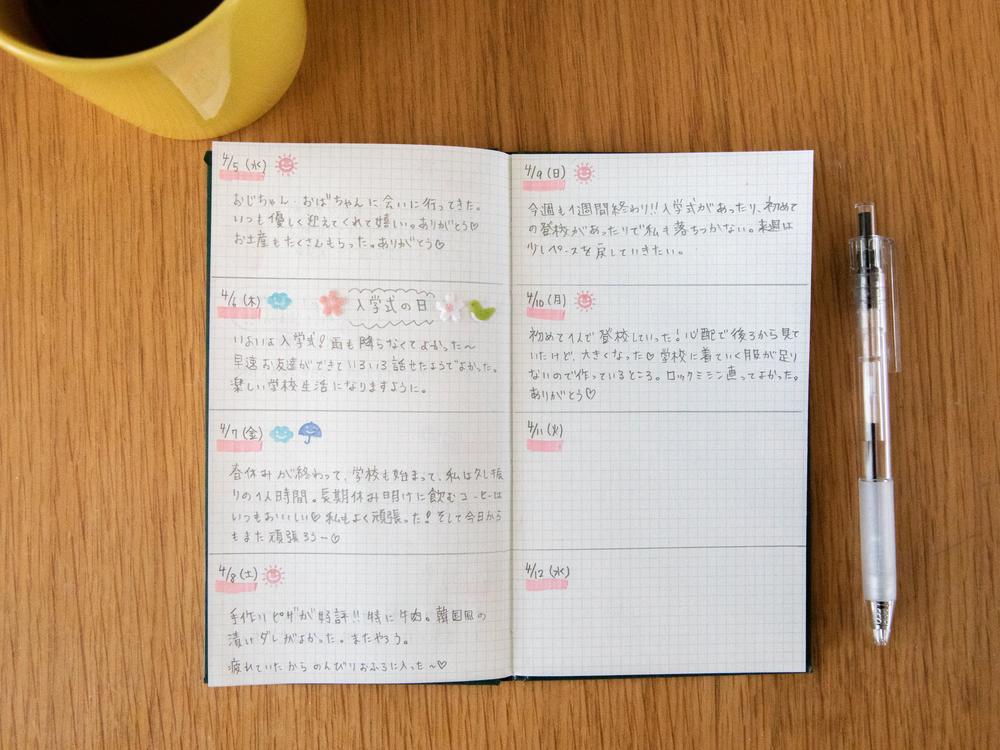 4/5 (水)
おじちゃん・おばちゃんに会いに行ってきた。
いつも優しく迎えてくれて嬉しい。ありがとう♡
お土産もたくさんもらった。ありがとう♡
4/6 (木)
入学式の日
いよいよ入学式！雨も降らなくてよかった〜
早速お友達ができていろいろ話せたようでよかった。
楽しい学校生活になりますように。
4/7 (金)
春休みが終わって、学校も始まって、私は久し振
りの1人時間。長期休み明けに飲むコーヒーは
いつもおいしい♡ 私もよく頑張った！そして今日から
もまた頑張ろう〜♡
4/8 (土)
手作りピザが好評!! 特に牛肉。韓国風の
漬けダレがよかった。またやろう。
疲れていたからのんびりおふろに入った〜♡
4/9 (日)
今週も1週間終わり!! 入学式があったり、初めて
の登校があったりで私も落ちつかない。来週は
少しペースを戻していきたい。
4/10 (月)
初めて1人で登校していった！心配で後ろから見て
いたけど、大きくなった♡ 学校に着ていく服が足り
ないので作っているところ。ロックミシン直ってよかった。
ありがとう♡
4/11 (火)
4/12 (水)